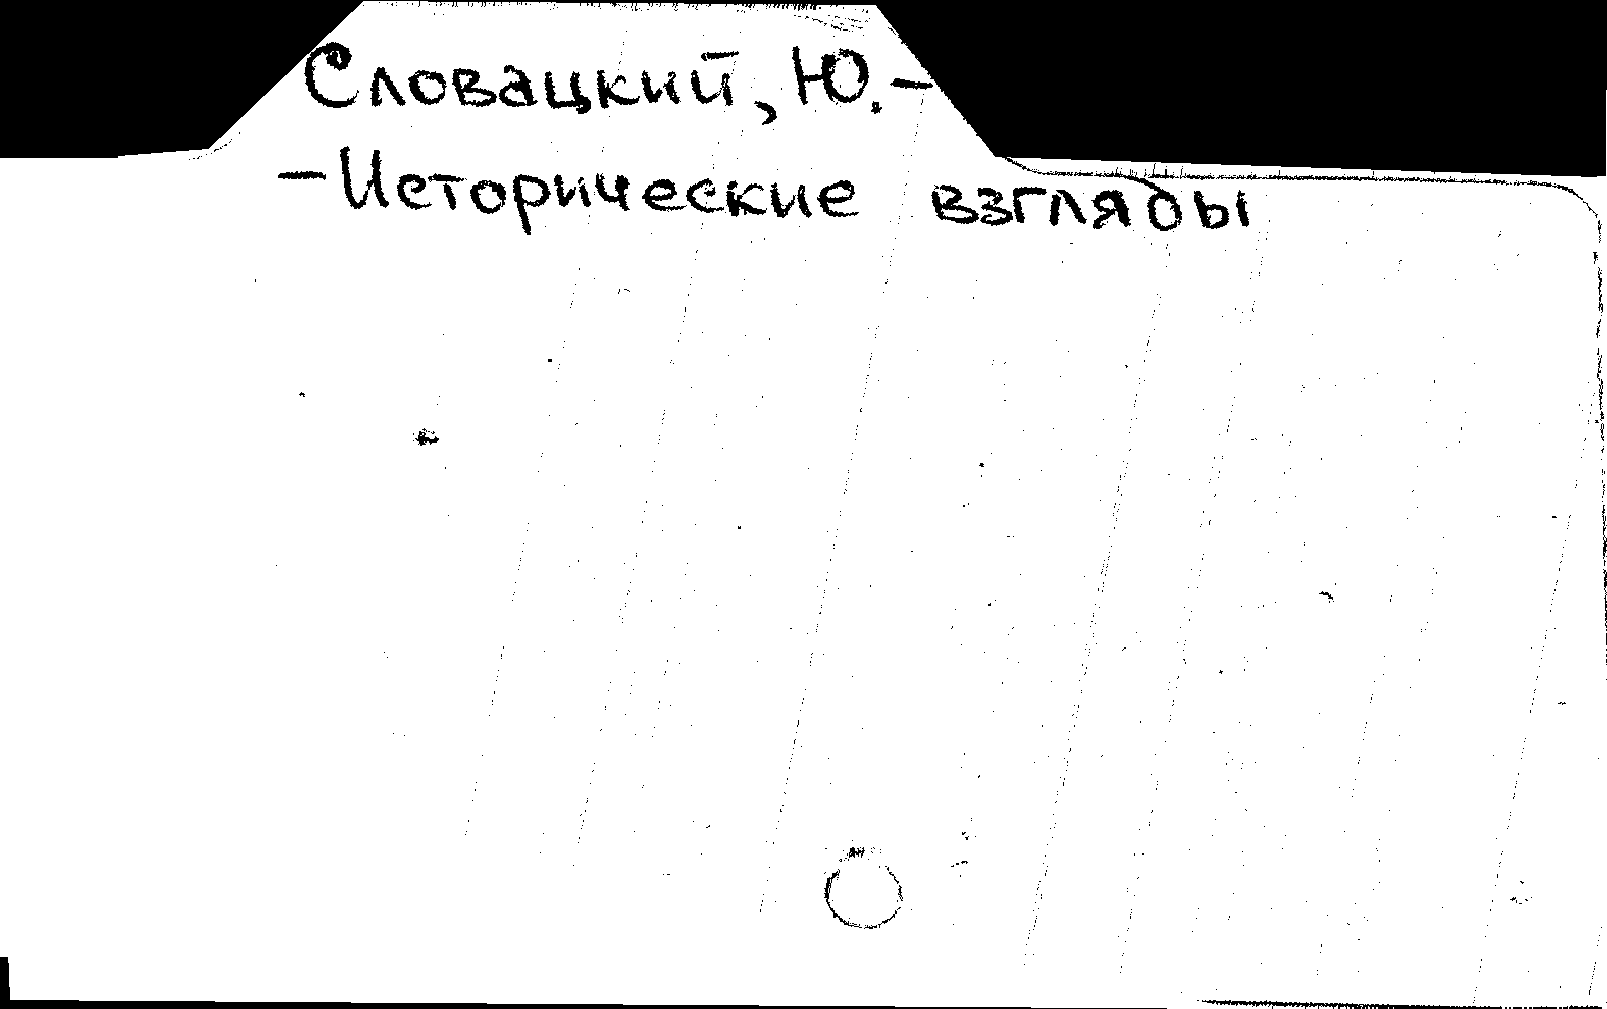 Словацкий, Ю. –
– Исторические взгляды